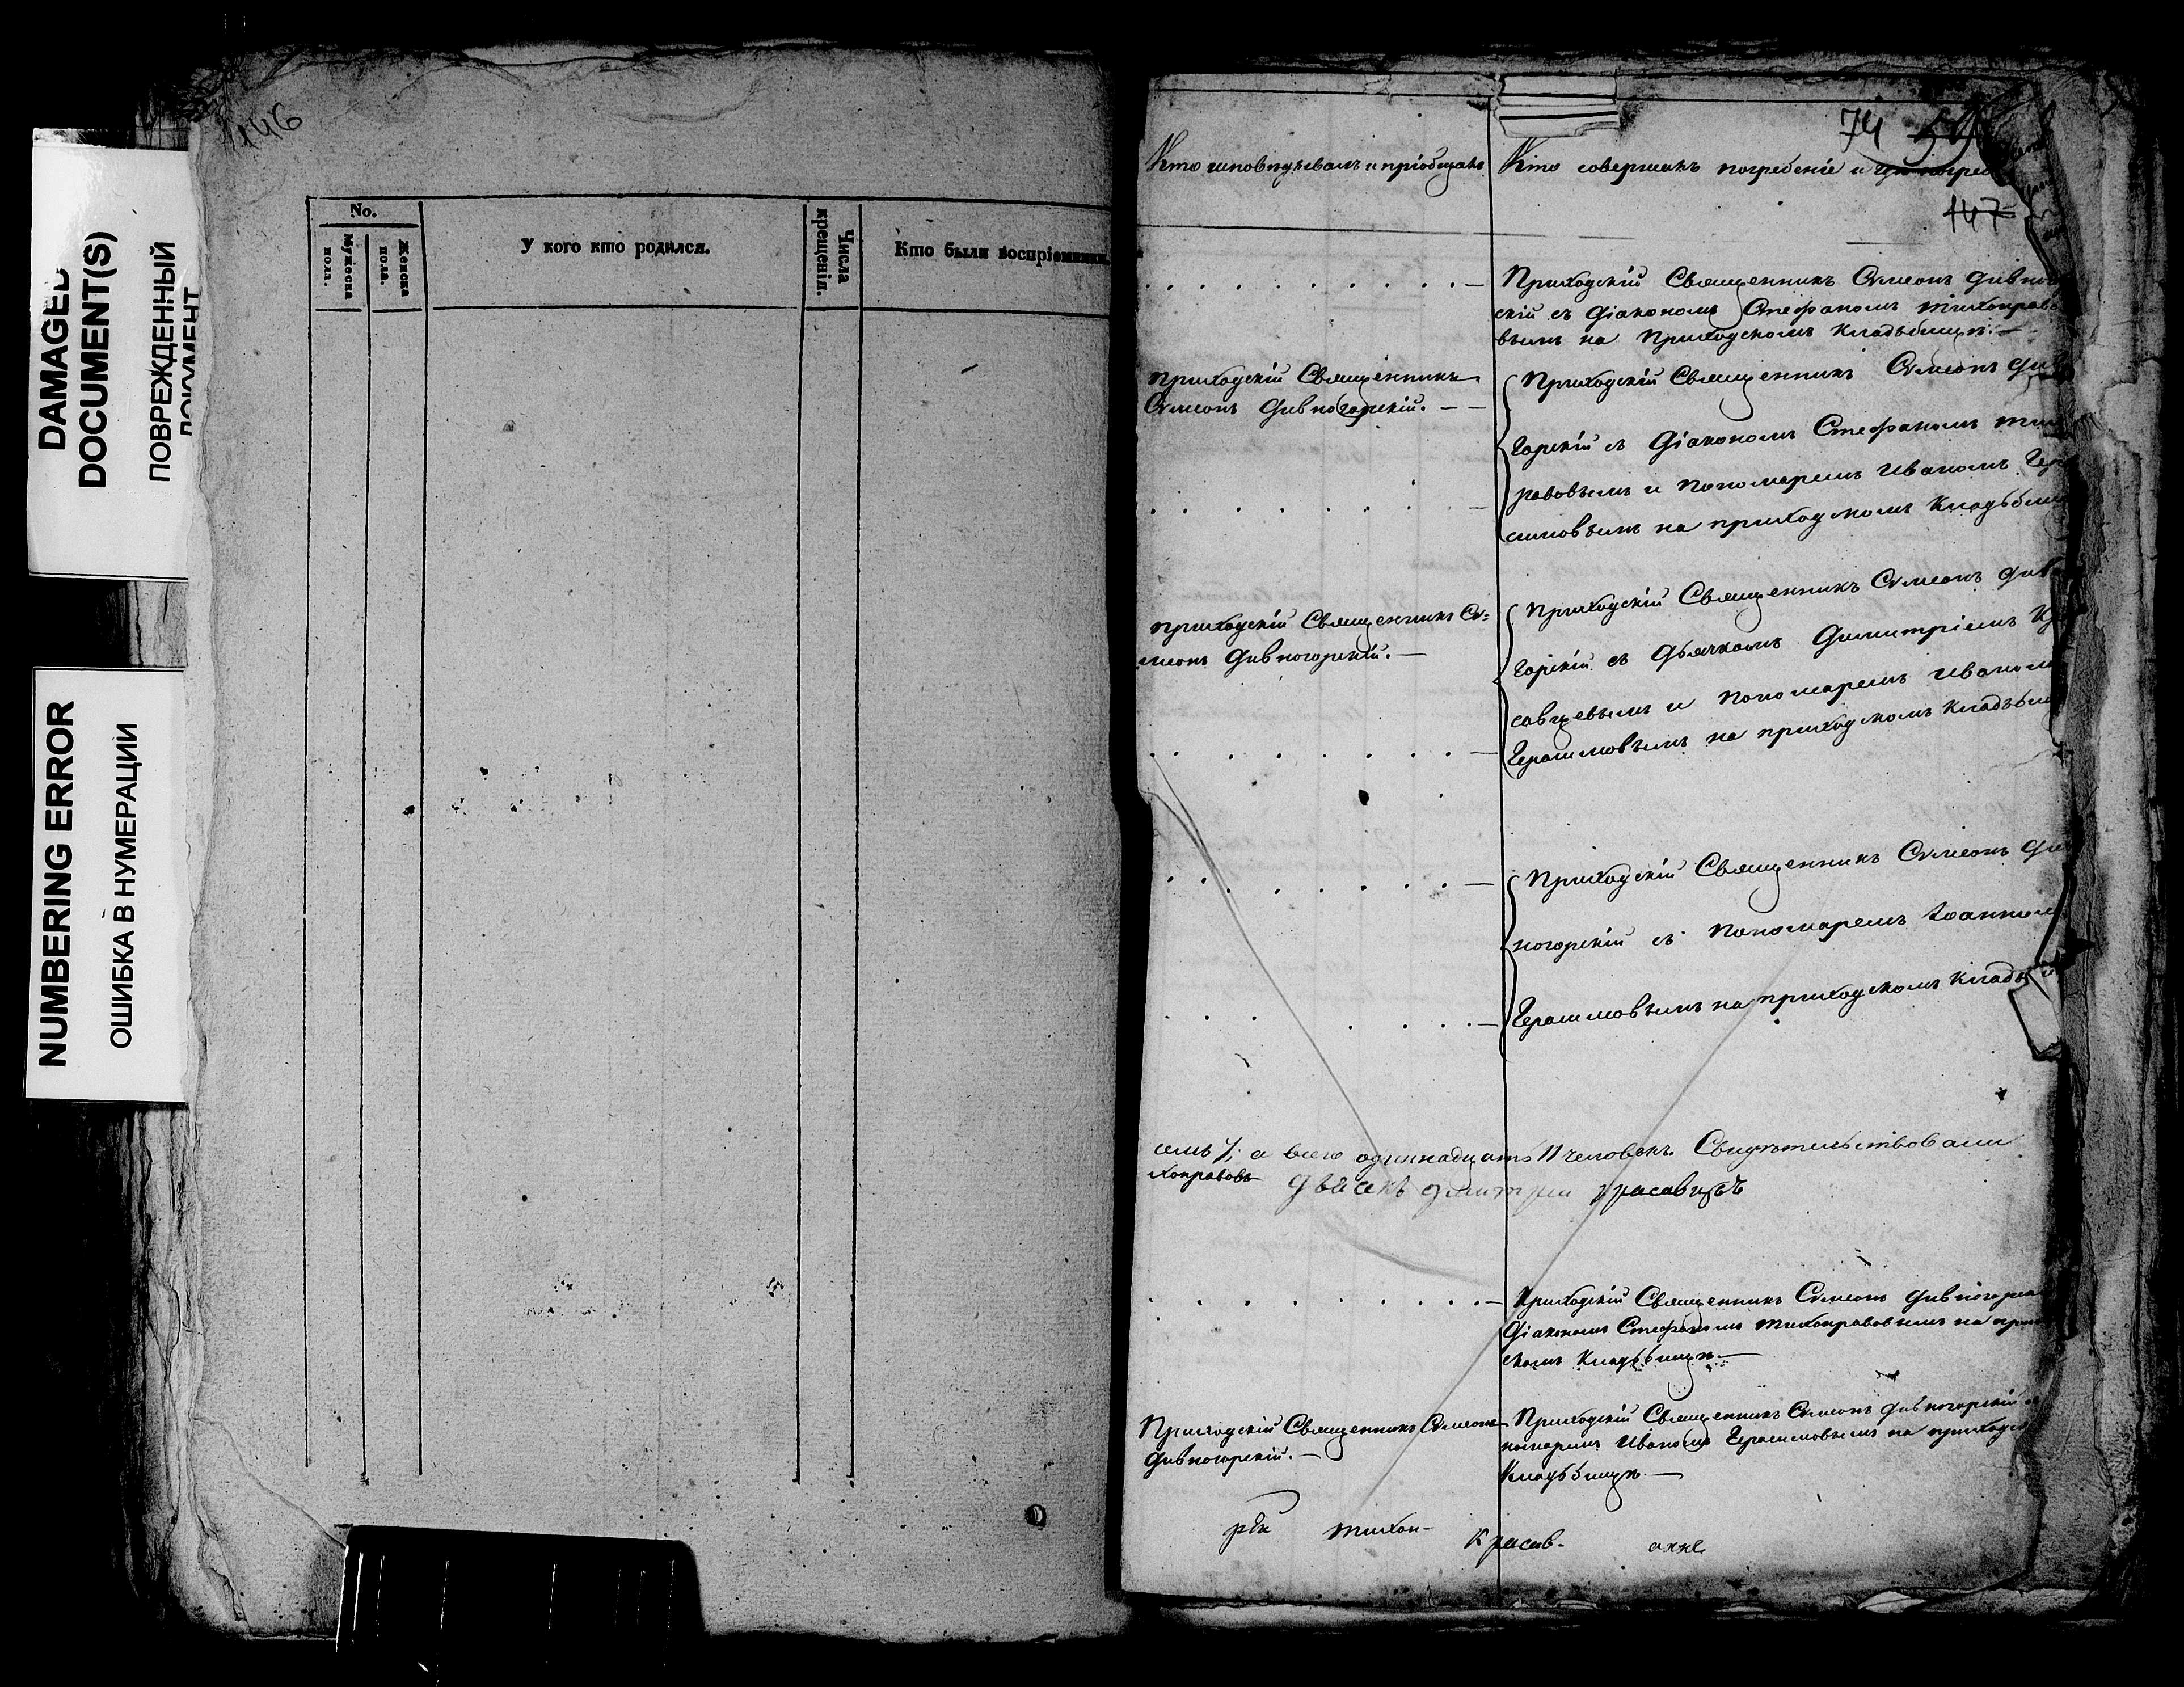 DAMAGED
DOCUMENT(S)
ПОВРЕЖДЕННЫЙ
ДОКУМЕНТ
NUMBERING ERROR
ОШИБКА В НУМЕРАЦИИ
146
No.
Мужеска пола.
Женска пола.
У кого кто родился.
Числа крещенія.
Кто были воспріемники.
74 59
147
Кто исповѣдывалъ и пріобщалъ
Кто совершалъ погребеніе и
Приходскій Священникъ Сѵмеонъ Дивно
скій съ Діакономъ Стефаномъ Тихонраво
вымъ на Приходскомъ Кладьбищѣ. —
Приходскій Священникъ
Сѵмеонъ Дивногорскій. — —
Приходскій Священникъ Сѵмеонъ Див
горскій съ Діакономъ Стефаномъ Тих
равовымъ и Пономаремъ Иваномъ Гера
симовымъ на приходскомъ Кладьби
Приходскій Священникъ Сѵ=
меонъ Дивногорскій. —
Приходскій Священникъ Сѵмеонъ Див
горскій съ Дьячкомъ Димитріемъ Кра
савцевымъ и Пономаремъ Иваномъ
Герасимовымъ на приходскомъ Кладьби
Приходскій Священникъ Сѵмеонъ Див
ногорскій съ Пономаремъ Іоанномъ
Герасимовымъ на приходскомъ Кладь
семь 7; а всего одиннадцать 11 человѣкъ. Свидѣтельствовали
хонравовъ Дьячекъ Дмитрій Красавцевъ
Приходскій Священникъ Сѵмеонъ Дивногорск
Діакономъ Стефаномъ Тихонравовымъ на прихо
скомъ Кладьбищѣ. —
Приходскій Священникъ Сѵмеонъ
Дивногорскій. —
Приходскій Священникъ Сѵмеонъ Дивногорскій с
номаремъ Иваномъ Герасимовымъ на приходс
Кладьбищѣ. —
Тихон-
Красав-